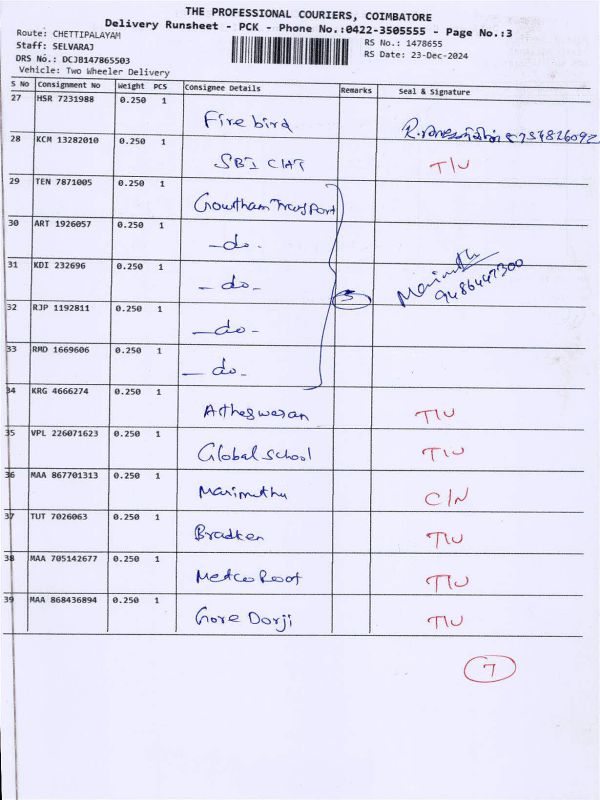 THE PROFESSIONAL COURIERS, COIMBATORE
Delivery Runsheet - PCK - Phone No.:0422-3505555 - Page No.:3
Route: CHETTIPALAYAM
RS No.: 1478655
Staff: SELVARAJ
RS Date: 23-Dec-2024
DRS No.: DCJB147865503
Vehicle: Two Wheeler Delivery
S No Consignment No Weight PCS Consignee Details Remarks Seal & Signature
27 HSR 7231988 0.250 1 Fire bird
28 KCM 13282010 0.250 1 SBI CHT T/U
29 TEN 7871005 0.250 1 Gowtham Transport
30 ART 1926057 0.250 1 -do-
31 KDI 232696 0.250 1 -do- 5 9486447300
32 RJP 1192811 0.250 1 -do-
33 RMD 1669606 0.250 1 -do-
34 KRG 4666274 0.250 1 Artheswaran T/U
35 VPL 226071623 0.250 1 Global School T/U
36 MAA 867701313 0.250 1 Marimuthu C/N
37 TUT 7026063 0.250 1 Bradken T/U
38 MAA 705142677 0.250 1 T/U
39 MAA 868436894 0.250 1 Gore Dorji T/U
7